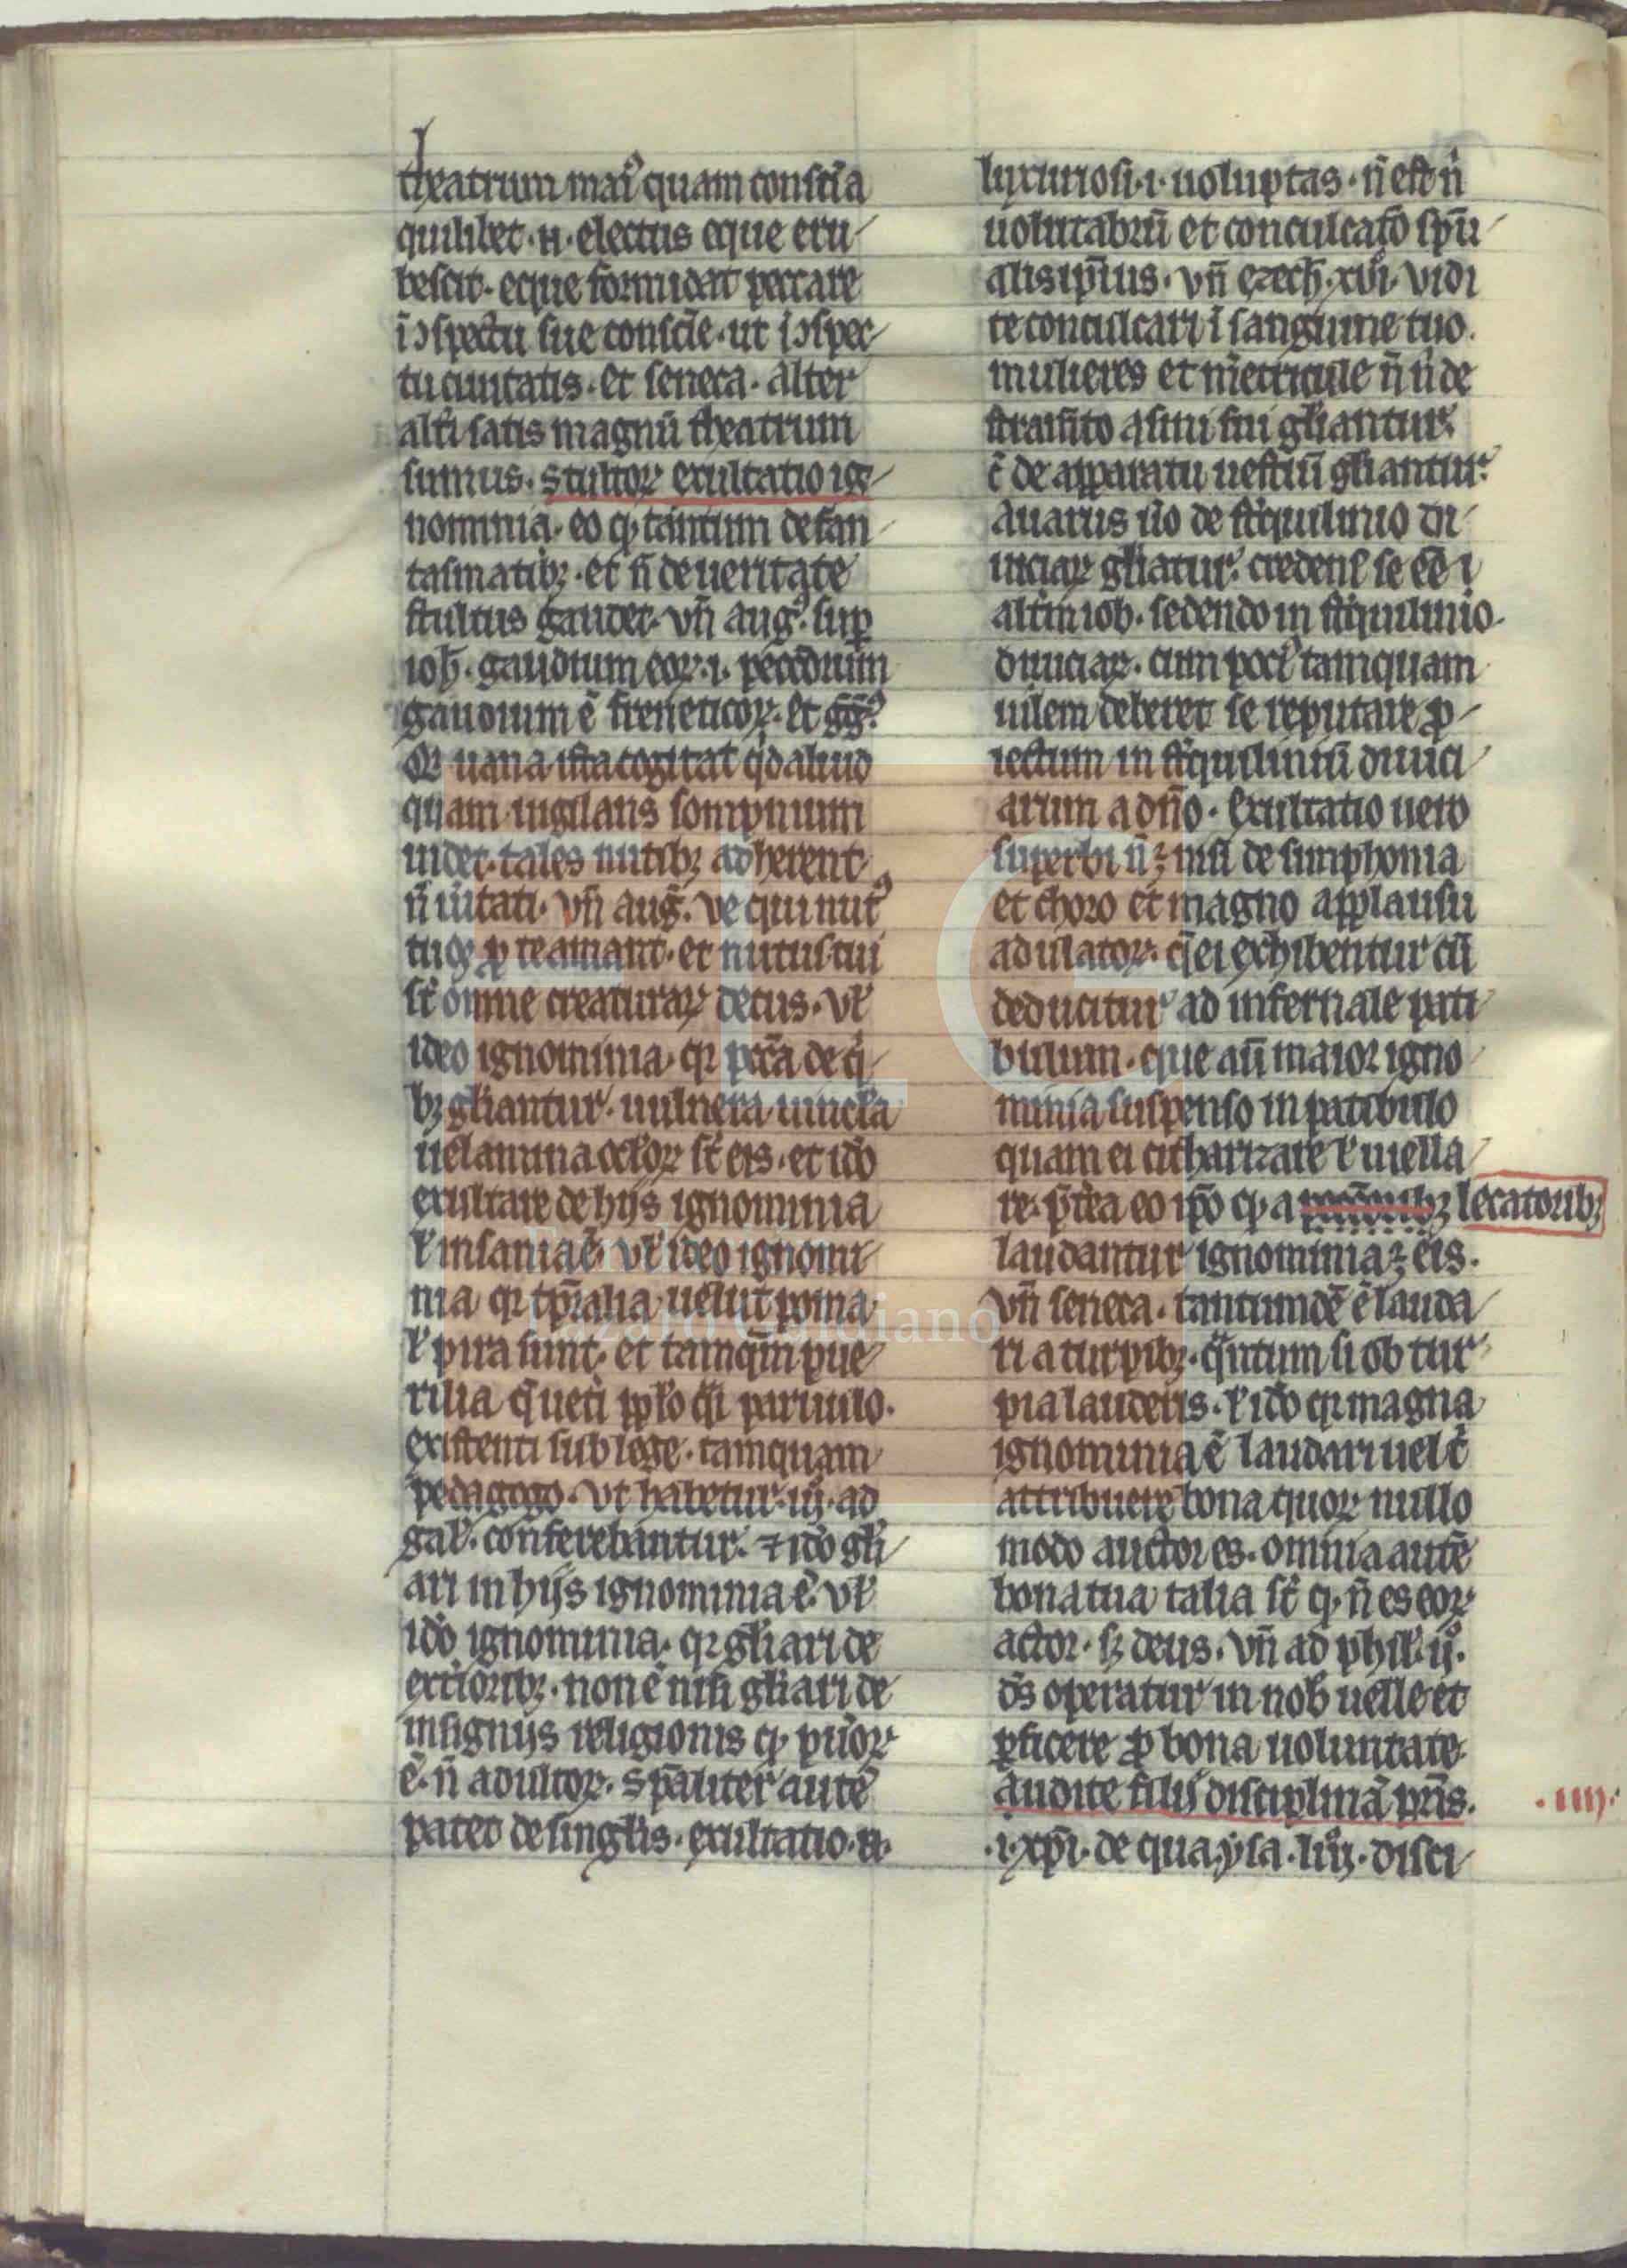 theatrum mai⁹ quam consci̅a
quilibet .n. electus eque eru
bescit. eque formidat peccare
i̅ ɔspectu sue consci̅e. ut i̅ ɔspec
tu ciuitatis. et seneca. alter
alt̾i satis magnu̅ theatrum
sumus. stultoꝝ exultatio ig
nominia. eo ꝙ tantum de fan
tasmatibꝫ. et n̅ de ueritate
stultus gaudet. vn̅ aug⁹. suꝑ
ioh̅. gaudium eoꝝ .i. pecc̅orum
gaudium e̅ freneticoꝝ. et g̅g̅⁹.
Qi uana ista cogitat qd aliud
quam uigilans sompnium
uidet. tales nutibꝫ adherent
n̅ u̾itati. vn̅ aug̅. ve qui nut⁹
tuos ꝓ te amant. et nutus tui
st̅ omne creaturaꝝ decus. vl̾
ideo ignominia. qr pcc̅a de qi
bꝫ gl̾iantur. uulnera uincl̾a
uelamina ocl̾oꝝ st̅ eis. et id̾o
exultare de hijs ignominia
l̾ insania e̅. vl̾ ideo ignomi
nia qr tp̅ralia uelut poma
l̾ pira sunt. et tamq̅m pue
rilia q̅ ueti̾ ppl̾o q̅i paruulo.
existenti sub lege. tamquam
pedagogo. vt habetur. iij. ad
gal̾. conferebantur. ⁊ id̾o gl̾i
ari in hijs ignominia e̅. vl̾
id̾o ignominia. qr gl̾iari de
ext̾ioribꝫ. non e̅ nisi gl̾iari de
insignijs religionis ꝙ pu̾oꝝ
e̅. n̅ adultoꝝ. sp̅aliter aute̅
patet de singl̾is. exultatio .n.
luxuriosi .i. uoluptas. n̅ est n̾
uolutabru̅ et conculcat̾o spu̅
alis ip̅ius. vn̅ ezech̅. xvi. vidi
te conculcari i̅ sanguine tuo.
mulieres et m̾etricule n̅ n̾ de
stram̅to asini sui gl̾iantur.
c̅ de apparatu uestiu̅ gl̾iantur.
Auarus u̾o de st̾quilinio di
uiciaꝝ gl̾iatur. credens se ee̅ i
alt̾m iob. sedendo in st̾quilinio
diuiciaꝝ. cum poci⁹ tamquam
uilem deberet se reputare ꝓ
iectum in st̾quiliniu̅ diuici
arum a dn̅o. Exultatio uero
superbi n̅ꝫ nisi de simphonia
et choro et magno applausu
adulatoꝝ. q̅ ei exhibentur cu̅
deducitur ad infernale pati
bulum. que au̅ maior igno
minia suspenso in patibulo
quam ei citharizare l̾ uiella
re. p̅t̾ea eo ip̅o ꝙ a lecatoribꝫ
laudantur ignominiaꝫ eis.
vn̅ seneca. tantumde̅ e̅ lauda
ri a turpibꝫ. q̅ntum si ob tur
pia lauderis. l̾ id̾o qr magna
ignominia e̅ laudari uel t̾
attribuere bona quoꝝ nullo
modo auctor es. omnia aute̅
bona tua talia st̅ ꝙ n̅ es eoꝝ
actor. sꝫ deus. vn̅ ad phil̾. ij⁰.
ds̅ operatur in nob̅ uelle et
ꝑficere ꝓ bona uoluntate.
Audite filij disciplina̅ pr̅is. .iiij.
.i. xp̅i. de qua ysa. liij. disci